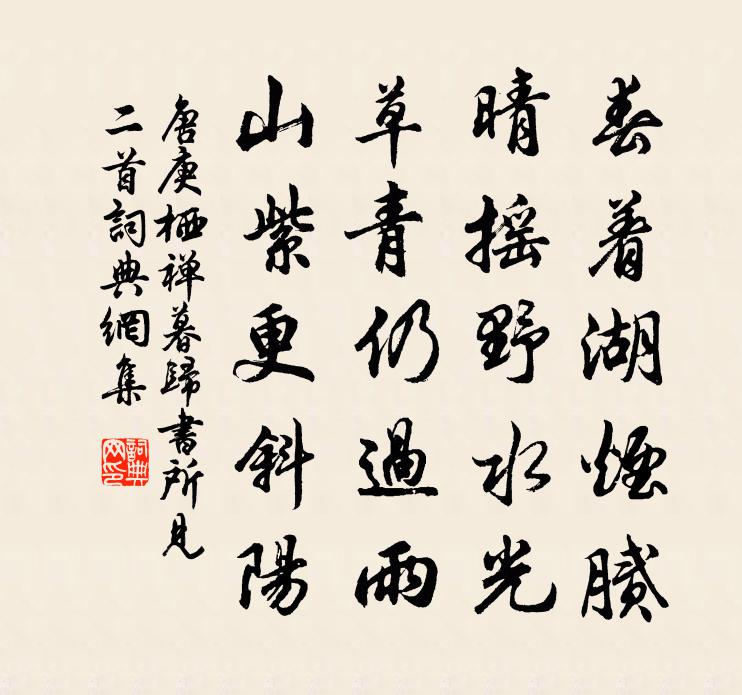 春着湖煙膩
晴摇野水光
草青仍過雨
山紫更斜陽
唐庚栖禅暮歸書所見
二首詞典網集
詞典網印